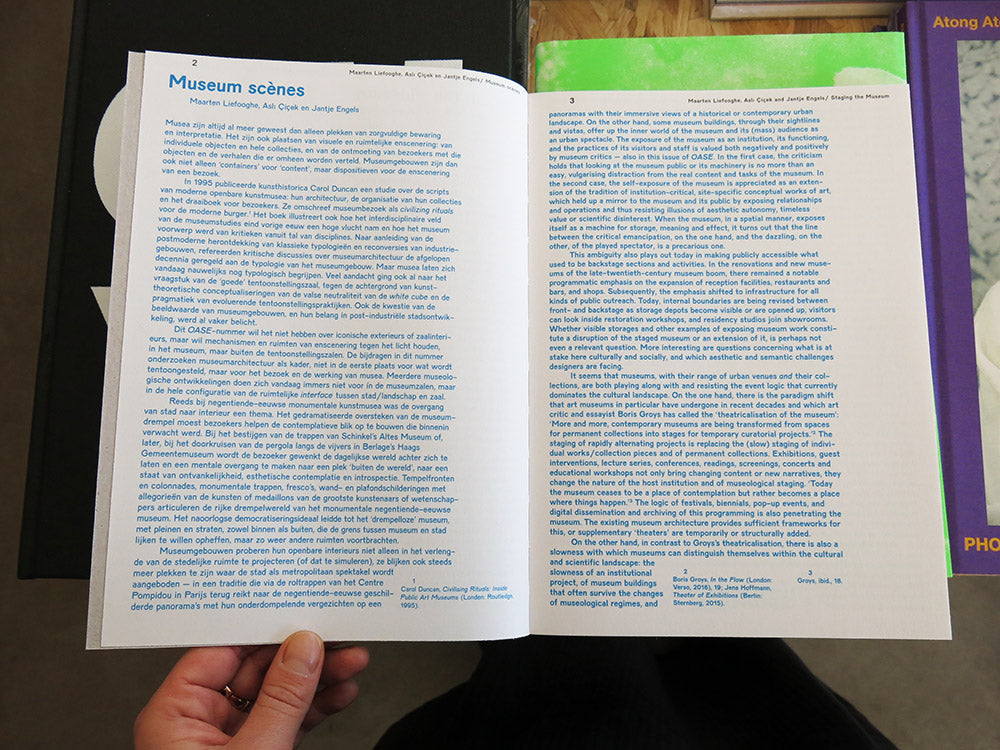 2
Maarten Liefooghe, Aslı Çiçek en Jantje Engels/ Museum scènes
Museum scènes
Maarten Liefooghe, Aslı Çiçek en Jantje Engels
Musea zijn altijd al meer geweest dan alleen plekken van zorgvuldige bewaring
en interpretatie. Het zijn ook plaatsen van visuele en ruimtelijke enscenering: van
individuele objecten en hele collecties, en van de ontmoeting van bezoekers met die
objecten en de verhalen die er omheen worden verteld. Museumgebouwen zijn dan
ook niet alleen 'containers' voor 'content', maar dispositieven voor de enscenering
van een bezoek.
In 1995 publiceerde kunsthistorica Carol Duncan een studie over de scripts
van moderne openbare kunstmusea: hun architectuur, de organisatie van hun collecties
en het draaiboek voor bezoekers. Ze omschreef museumbezoek als civilizing rituals
voor de moderne burger.¹ Het boek illustreert ook hoe het interdisciplinaire veld
van de museumstudies eind vorige eeuw een hoge vlucht nam en hoe het museum
voorwerp werd van kritieken vanuit tal van disciplines. Naar aanleiding van de
postmoderne herontdekking van klassieke typologieën en reconversies van industrie-
gebouwen, refereerden kritische discussies over museumarchitectuur de afgelopen
decennia geregeld aan de typologie van het museumgebouw. Maar musea laten zich
vandaag nauwelijks nog typologisch begrijpen. Veel aandacht ging ook al naar het
vraagstuk van de 'goede' tentoonstellingszaal, tegen de achtergrond van kunst-
theoretische conceptualiseringen van de valse neutraliteit van de white cube en de
pragmatiek van evoluerende tentoonstellingspraktijken. Ook de kwestie van de
beeldwaarde van museumgebouwen, en hun belang in post-industriële stadsontwik-
keling, werd al vaker belicht.
Dit OASE-nummer wil het niet hebben over iconische exterieurs of zaalinteri-
eurs, maar wil mechanismen en ruimten van enscenering tegen het licht houden,
in het museum, maar buiten de tentoonstellingszalen. De bijdragen in dit nummer
onderzoeken museumarchitectuur als kader, niet in de eerste plaats voor wat wordt
tentoongesteld, maar voor het bezoek en de werking van musea. Meerdere museolo-
gische ontwikkelingen doen zich vandaag immers niet voor ín de museumzalen, maar
in de hele configuratie van de ruimtelijke interface tussen stad/landschap en zaal.
Reeds bij negentiende-eeuwse monumentale kunstmusea was de overgang
van stad naar interieur een thema. Het gedramatiseerde oversteken van de museum-
drempel moest bezoekers helpen de contemplatieve blik op te bouwen die binnenin
verwacht werd. Bij het bestijgen van de trappen van Schinkel's Altes Museum of,
later, bij het doorkruisen van de pergola langs de vijvers in Berlage's Haags
Gemeentemuseum wordt de bezoeker gewenkt de dagelijkse wereld achter zich te
laten en een mentale overgang te maken naar een plek 'buiten de wereld', naar een
staat van ontvankelijkheid, esthetische contemplatie en introspectie. Tempelfronten
en colonnades, monumentale trappen, fresco's, wand- en plafondschilderingen met
allegorieën van de kunsten of medaillons van de grootste kunstenaars of wetenschap-
pers articuleren de rijke drempelwereld van het monumentale negentiende-eeuwse
museum. Het naoorlogse democratiseringsideaal leidde tot het 'drempelloze' museum,
met pleinen en straten, zowel binnen als buiten, die de grens tussen museum en stad
lijken te willen opheffen, maar zo weer andere ruimten voortbrachten.
Museumgebouwen proberen hun openbare interieurs niet alleen in het verleng-
de van de stedelijke ruimte te projecteren (of dat te simuleren), ze blijken ook steeds
meer plekken te zijn waar de stad als metropolitaan spektakel wordt
aangeboden — in een traditie die via de roltrappen van het Centre
Pompidou in Parijs terug reikt naar de negentiende-eeuwse geschil-
derde panorama's met hun onderdompelende vergezichten op een
1
Carol Duncan, Civilising Rituals: Inside
Public Art Museums (London: Routledge,
1995).
3
Maarten Liefooghe, Aslı Çiçek and Jantje Engels/ Staging the Museum
panoramas with their immersive views of a historical or contemporary urban
landscape. On the other hand, some museum buildings, through their sightlines
and vistas, offer up the inner world of the museum and its (mass) audience as
an urban spectacle. The exposure of the museum as an institution, its functioning,
and the practices of its visitors and staff is valued both negatively and positively
by museum critics — also in this issue of OASE. In the first case, the criticism
holds that looking at the museum public or its machinery is no more than an
easy, vulgarising distraction from the real content and tasks of the museum. In
the second case, the self-exposure of the museum is appreciated as an exten-
sion of the tradition of institution-critical, site-specific conceptual works of art,
which held up a mirror to the museum and its public by exposing relationships
and operations and thus resisting illusions of aesthetic autonomy, timeless
value or scientific disinterest. When the museum, in a spatial manner, exposes
itself as a machine for storage, meaning and effect, it turns out that the line
between the critical emancipation, on the one hand, and the dazzling, on the
other, of the played spectator, is a precarious one.
This ambiguity also plays out today in making publicly accessible what
used to be backstage sections and activities. In the renovations and new muse-
ums of the late-twentieth-century museum boom, there remained a notable
programmatic emphasis on the expansion of reception facilities, restaurants and
bars, and shops. Subsequently, the emphasis shifted to infrastructure for all
kinds of public outreach. Today, internal boundaries are being revised between
front- and backstage as storage depots become visible or are opened up, visitors
can look inside restoration workshops, and residency studios join showrooms.
Whether visible storages and other examples of exposing museum work consti-
tute a disruption of the staged museum or an extension of it, is perhaps not
even a relevant question. More interesting are questions concerning what is at
stake here culturally and socially, and which aesthetic and semantic challenges
designers are facing.
It seems that museums, with their range of urban venues and their col-
lections, are both playing along with and resisting the event logic that currently
dominates the cultural landscape. On the one hand, there is the paradigm shift
that art museums in particular have undergone in recent decades and which art
critic and essayist Boris Groys has called the 'theatricalisation of the museum':
'More and more, contemporary museums are being transformed from spaces
for permanent collections into stages for temporary curatorial projects.'² The
staging of rapidly alternating projects is replacing the (slow) staging of indivi-
dual works/collection pieces and of permanent collections. Exhibitions, guest
interventions, lecture series, conferences, readings, screenings, concerts and
educational workshops not only bring changing content or new narratives, they
change the nature of the host institution and of museological staging. 'Today
the museum ceases to be a place of contemplation but rather becomes a place
where things happen.'³ The logic of festivals, biennials, pop-up events, and
digital dissemination and archiving of this programming is also penetrating the
museum. The existing museum architecture provides sufficient frameworks for
this, or supplementary 'theaters' are temporarily or structurally added.
On the other hand, in contrast to Groys's theatricalisation, there is also a
slowness with which museums can distinguish themselves within the cultural
and scientific landscape: the
slowness of an institutional
project, of museum buildings
that often survive the changes
of museological regimes, and
2
Boris Groys, In the Flow (London:
Verso, 2016), 19; Jens Hoffmann,
Theater of Exhibitions (Berlin:
Sternberg, 2015).
3
Groys, ibid., 18.
Atong At
PHO